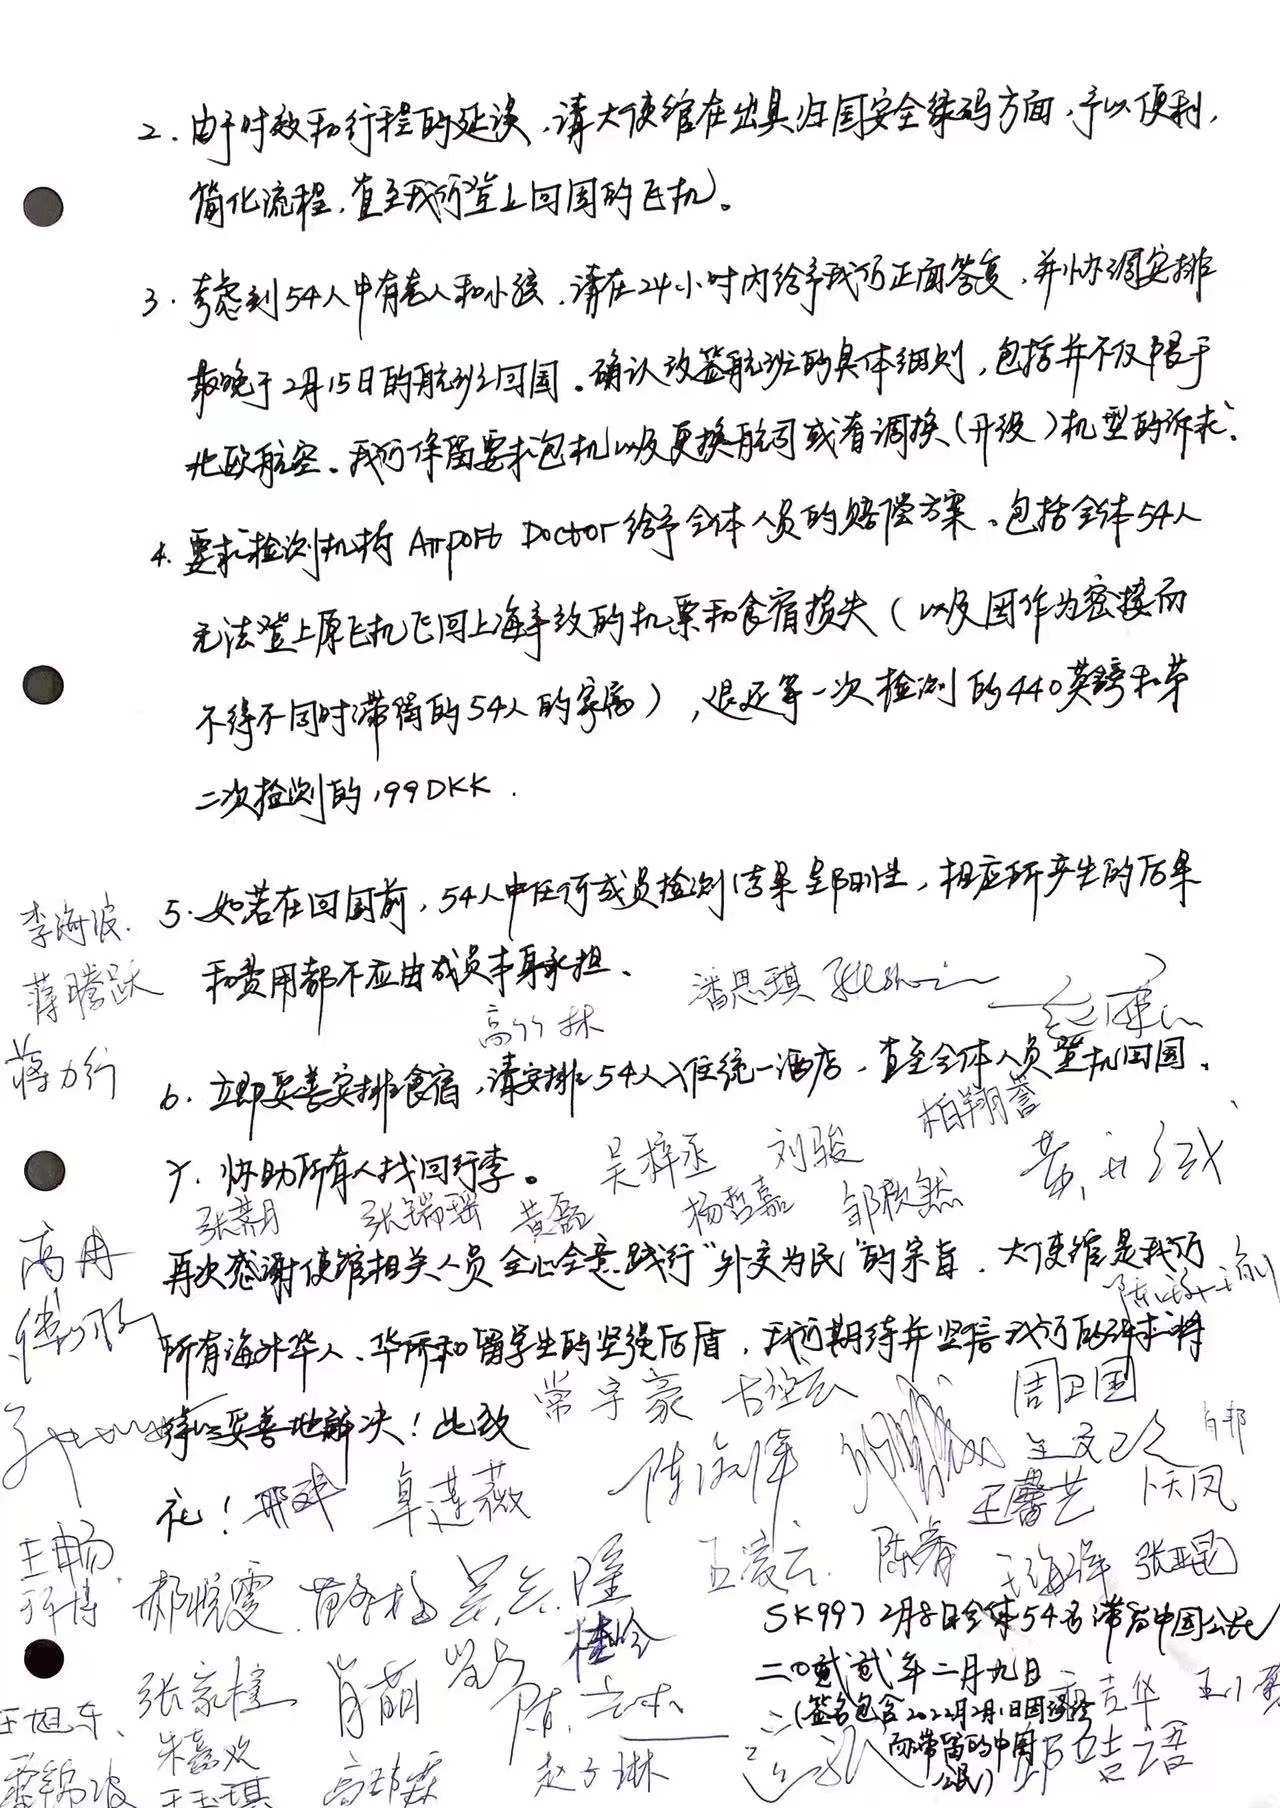 2. 由于时效和行程的延误,请大使馆在出具归国安全绿码方面,予以便利,
简化流程,直至我们登上回国的飞机。
3. 考虑到54人中有老人和小孩,请在24小时内给予我们正面答复,并协调安排
最晚于2月15日的航班回国。确认改签航班的具体细则,包括并不仅限于
北欧航空。我们保留要求包机以及更换航司或者调换(升级)机型的诉求。
4. 要求检测机构 Airport Doctor 给予全体人员的赔偿方案。包括全体54人
无法登上原飞机飞回上海导致的机票和食宿损失(以及因作为密接而
不得不同时滞留的54人的家属),退还第一次检测的440英镑和第
二次检测的199DKK.
5. 如若在回国前,54人中任何成员检测结果呈阳性,相应所产生的后果
李海波
和费用都不应由成员本身承担.
蒋腾跃
潘思琪
高竹林
蒋力行
6. 立即妥善安排食宿,请安排54人入住统一酒店,直至全体人员登机回国。
柏翔誉
7. 协助所有人找回行李。
吴梓丞 刘骏
张萧月 张锴瑶 黄磊 杨哲嘉 邹欣然
高冉
再次感谢使馆相关人员全心全意践行“外交为民”的宗旨,大使馆是我们
所有海外华人、华侨和留学生的坚强后盾,我们期待并坚信我们的诉求将
常宇豪
周卫国
得以妥善地解决!此致
礼!
卓莲薇
王馨艺
王畅
郝悦雯
王凌云 陈睿
张亚昆
SK997 2月8日全体54名滞留中国公民
桂吟
二〇贰贰年二月九日
张家槿 肖萌
(签名包含2022月2月1日因误诊
而滞留的中国
公民)
王旭东
朱嘉欢
赵子琳
邱喆语